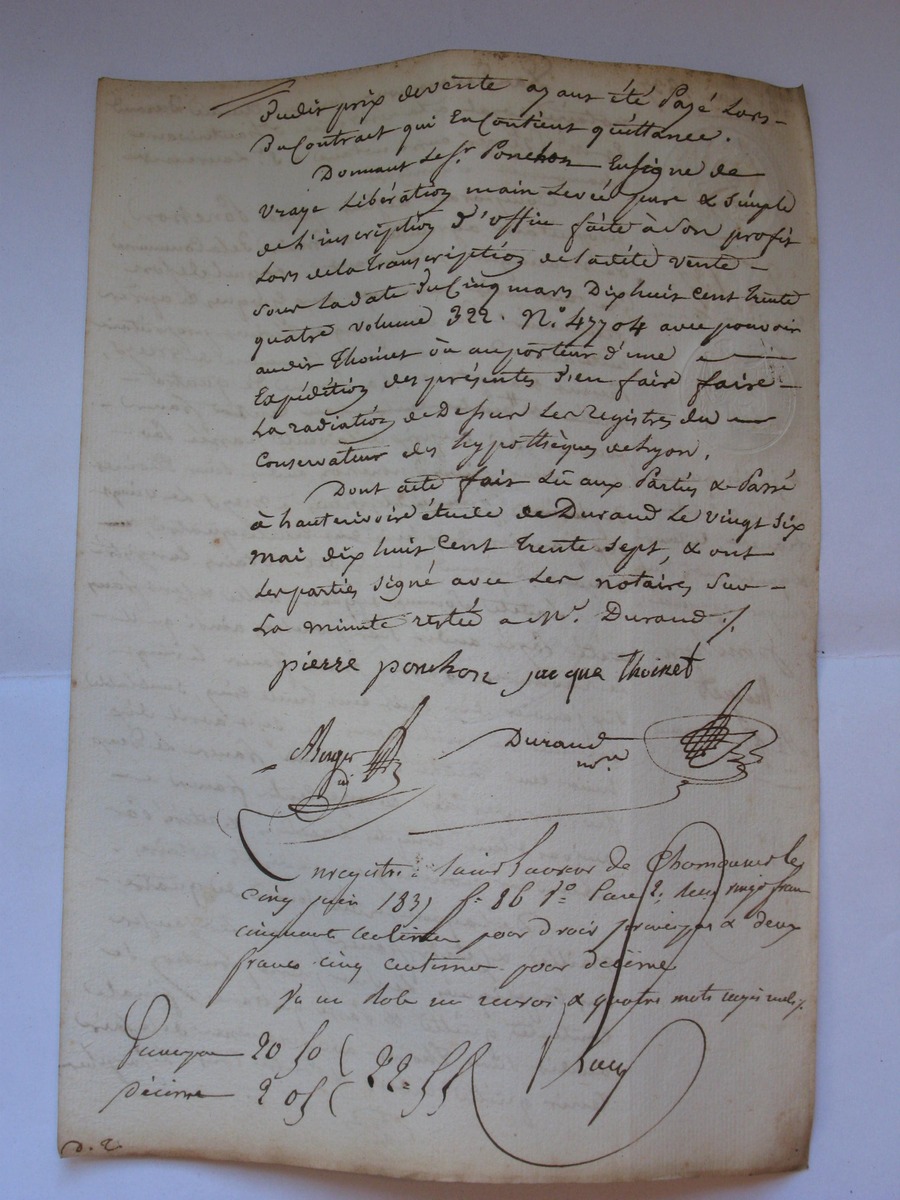 Dudit prix de vente ayant été Payé Lors
Du Contrat qui En Contient quittance.
Donnant Le Sr. Ponchon En signe de
vraye Libération main Levée pure & simple
de L'inscription d'office faite à Son profit
Lors de la transcription de ladite vente
Sous la date Du Cinq mars Dix huit Cent trente
quatre volume 322. No. 47704 avec pouvoir
audit Thoinet ou au porteur d'une
Expédition des présentes d'en faire faire
La radiation de Dessur Les registres du
Conservateur des hypothèques de Lyon.
Dont acte fait Lû aux Parties & Passé
à hauterivoire étude de Durand Le vingt six
mai dix huit Cent trente Sept, & ont
Les parties Signé avec Les notaires Sur
La minute restée à Me. Durand
pierre ponchon jacque thoinet
Berger
Durand
nore
Enregistré à Saint Laurent de Chamousset le
cinq juin 1837 f. 86 Vo. Case 2. Reçu vingt francs
cinquante centimes pour droit principal & deux
francs cinq centimes pour décime
Principal 20 50
22 = 55
Décime 2 05
D. 2.